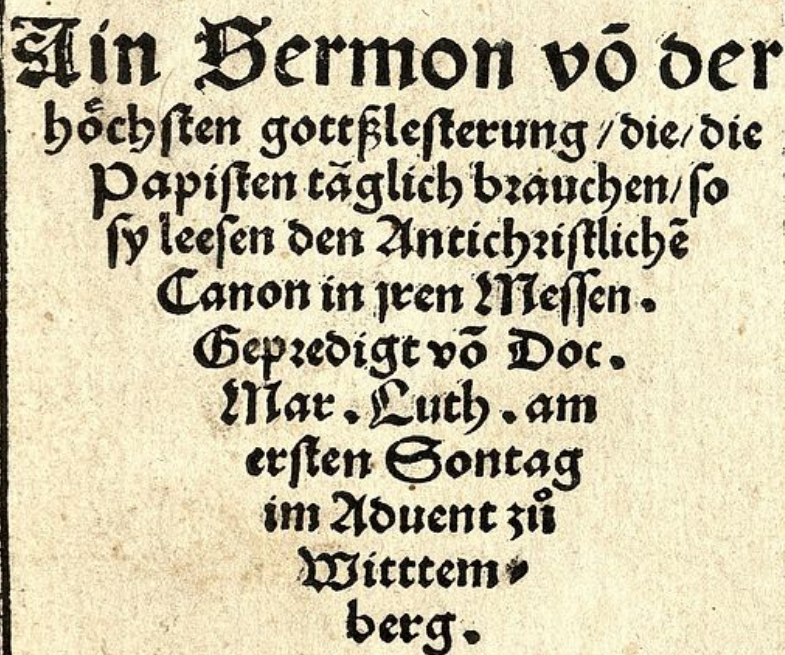 Ain Sermon vō der
hoͤchſten gottßleſterung / die / die
Papiſten taͤglich brauchen / ſo
ſy leeſen den Antichriſtlichē
Canon in jren Meſſen.
Gepredigt vō Doc.
Mar. Luth. am
erſten Sontag
im Aduent zuͦ
Witttem⸗
berg.